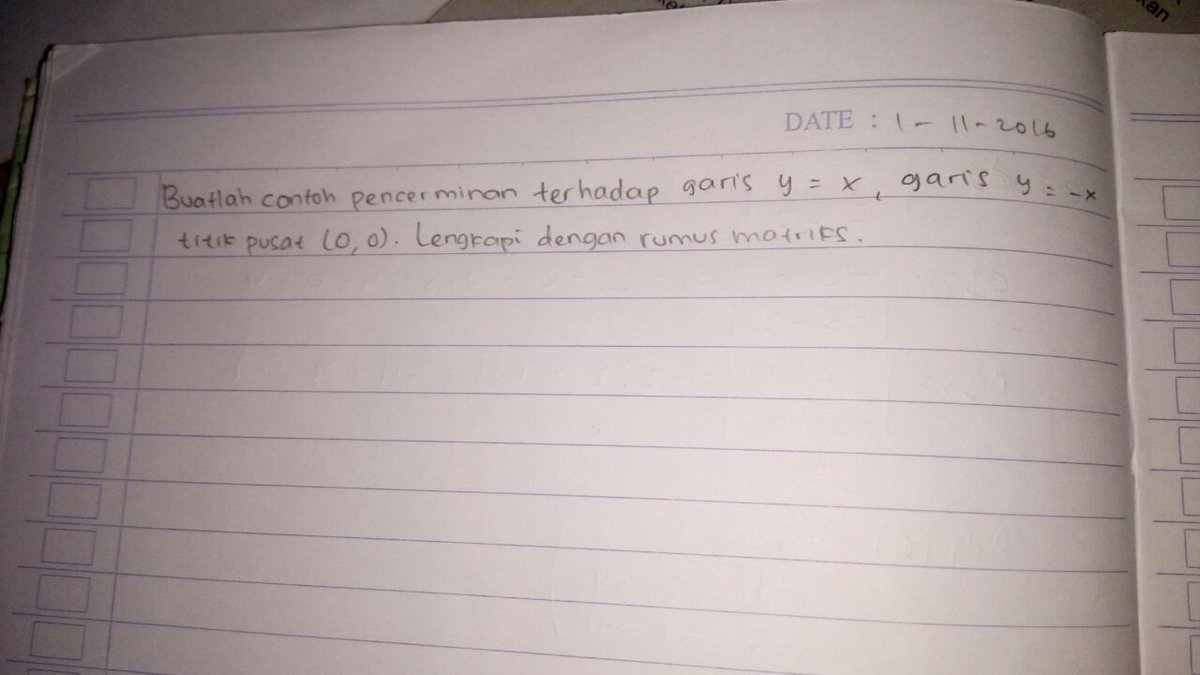 kan
DATE : 1 - 11 - 2016
Buatlah contoh pencerminan terhadap garis y = x, garis y = -x
titik pusat (0,0). Lengkapi dengan rumus matriks.